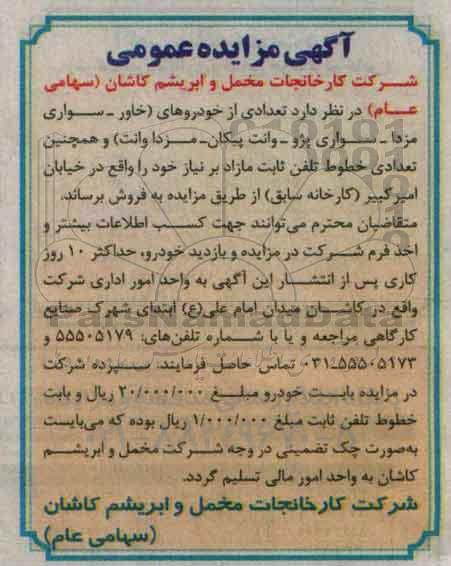 آگهی مزایده عمومی
شرکت کارخانجات مخمل و ابریشم کاشان (سهامی
عام) در نظر دارد تعدادی از خودروهای (خاور ـ سواری
مزدا ـ سواری پژو ـ وانت پیکان ـ مزدا وانت) و همچنین
تعدادی خطوط تلفن ثابت مازاد بر نیاز خود را واقع در خیابان
امیرکبیر (کارخانه سابق) از طریق مزایده به فروش برساند.
متقاضیان محترم می‌توانند جهت کسب اطلاعات بیشتر و
اخذ فرم شرکت در مزایده و بازدید خودرو، حداکثر ۱۰ روز
کاری پس از انتشار این آگهی به واحد امور اداری شرکت
واقع در کاشان میدان امام علی(ع) ابتدای شهرک صنایع
کارگاهی مراجعه و یا با شماره تلفن‌های: ۵۵۵۰۵۱۷۹ و
۵۵۵۰۵۱۷۳-۰۳۱ تماس حاصل فرمایند. سپرده شرکت
در مزایده بابت خودرو مبلغ ۲۰/۰۰۰/۰۰۰ ریال و بابت
خطوط تلفن ثابت مبلغ ۱/۰۰۰/۰۰۰ ریال بوده که می‌بایست
به‌صورت چک تضمینی در وجه شرکت مخمل و ابریشم
کاشان به واحد امور مالی تسلیم گردد.
شرکت کارخانجات مخمل و ابریشم کاشان
(سهامی عام)
ParsNamadData